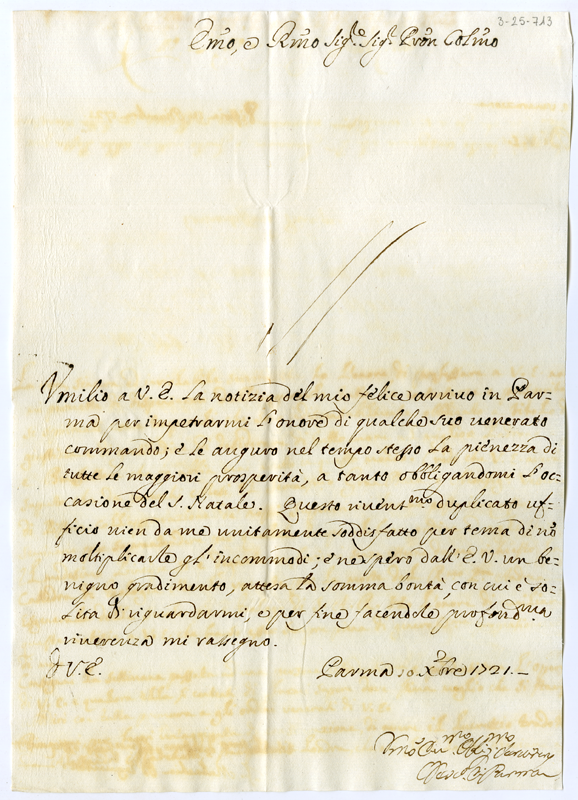 3-25-713
Em̃o, e Rm̃o Sig.r Sig.r Pron̄ Colm̃o
Vmilio a V. E. la notizia del mio felice arrivo in Par-
ma per impetrarmi l'onore di qualche suo venerato
commando; e le auguro nel tempo stesso la pienezza di
tutte le maggiori prosperità, a tanto obbligandomi l'oc-
casione del S. Natale. Questo rivent.mo duplicato uf-
ficio vien da me unitamente soddisfatto per tema di nō
moltiplicarle gl'incommodi; e ne spero dall'E. V. un be-
nigno gradimento, attesa la somma bontà, con cui è so-
lita di riguardarmi, e per fine facendole profond.ma
riverenza mi rassegno.
D V. E. Parma 10 Xbre 1721. –
Vm̃o Obb.mo